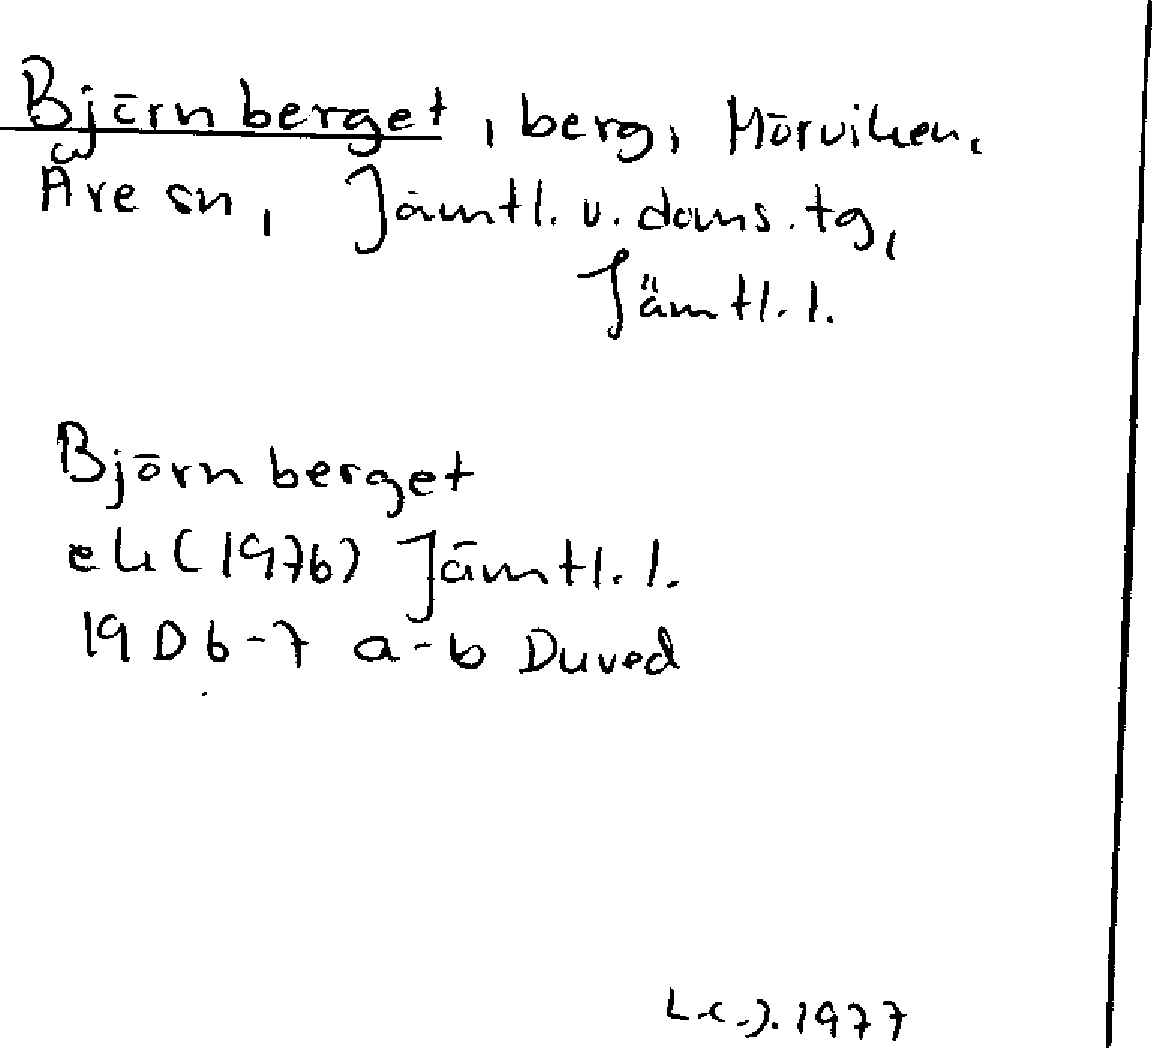 Björnberget, berg, Mörviken,
Åre sn, Jämtl. v. doms. tg,
Jämtl. l.
Björnberget
ek (1976) Jämtl. l.
19D 6-7 a-b Duved
1977